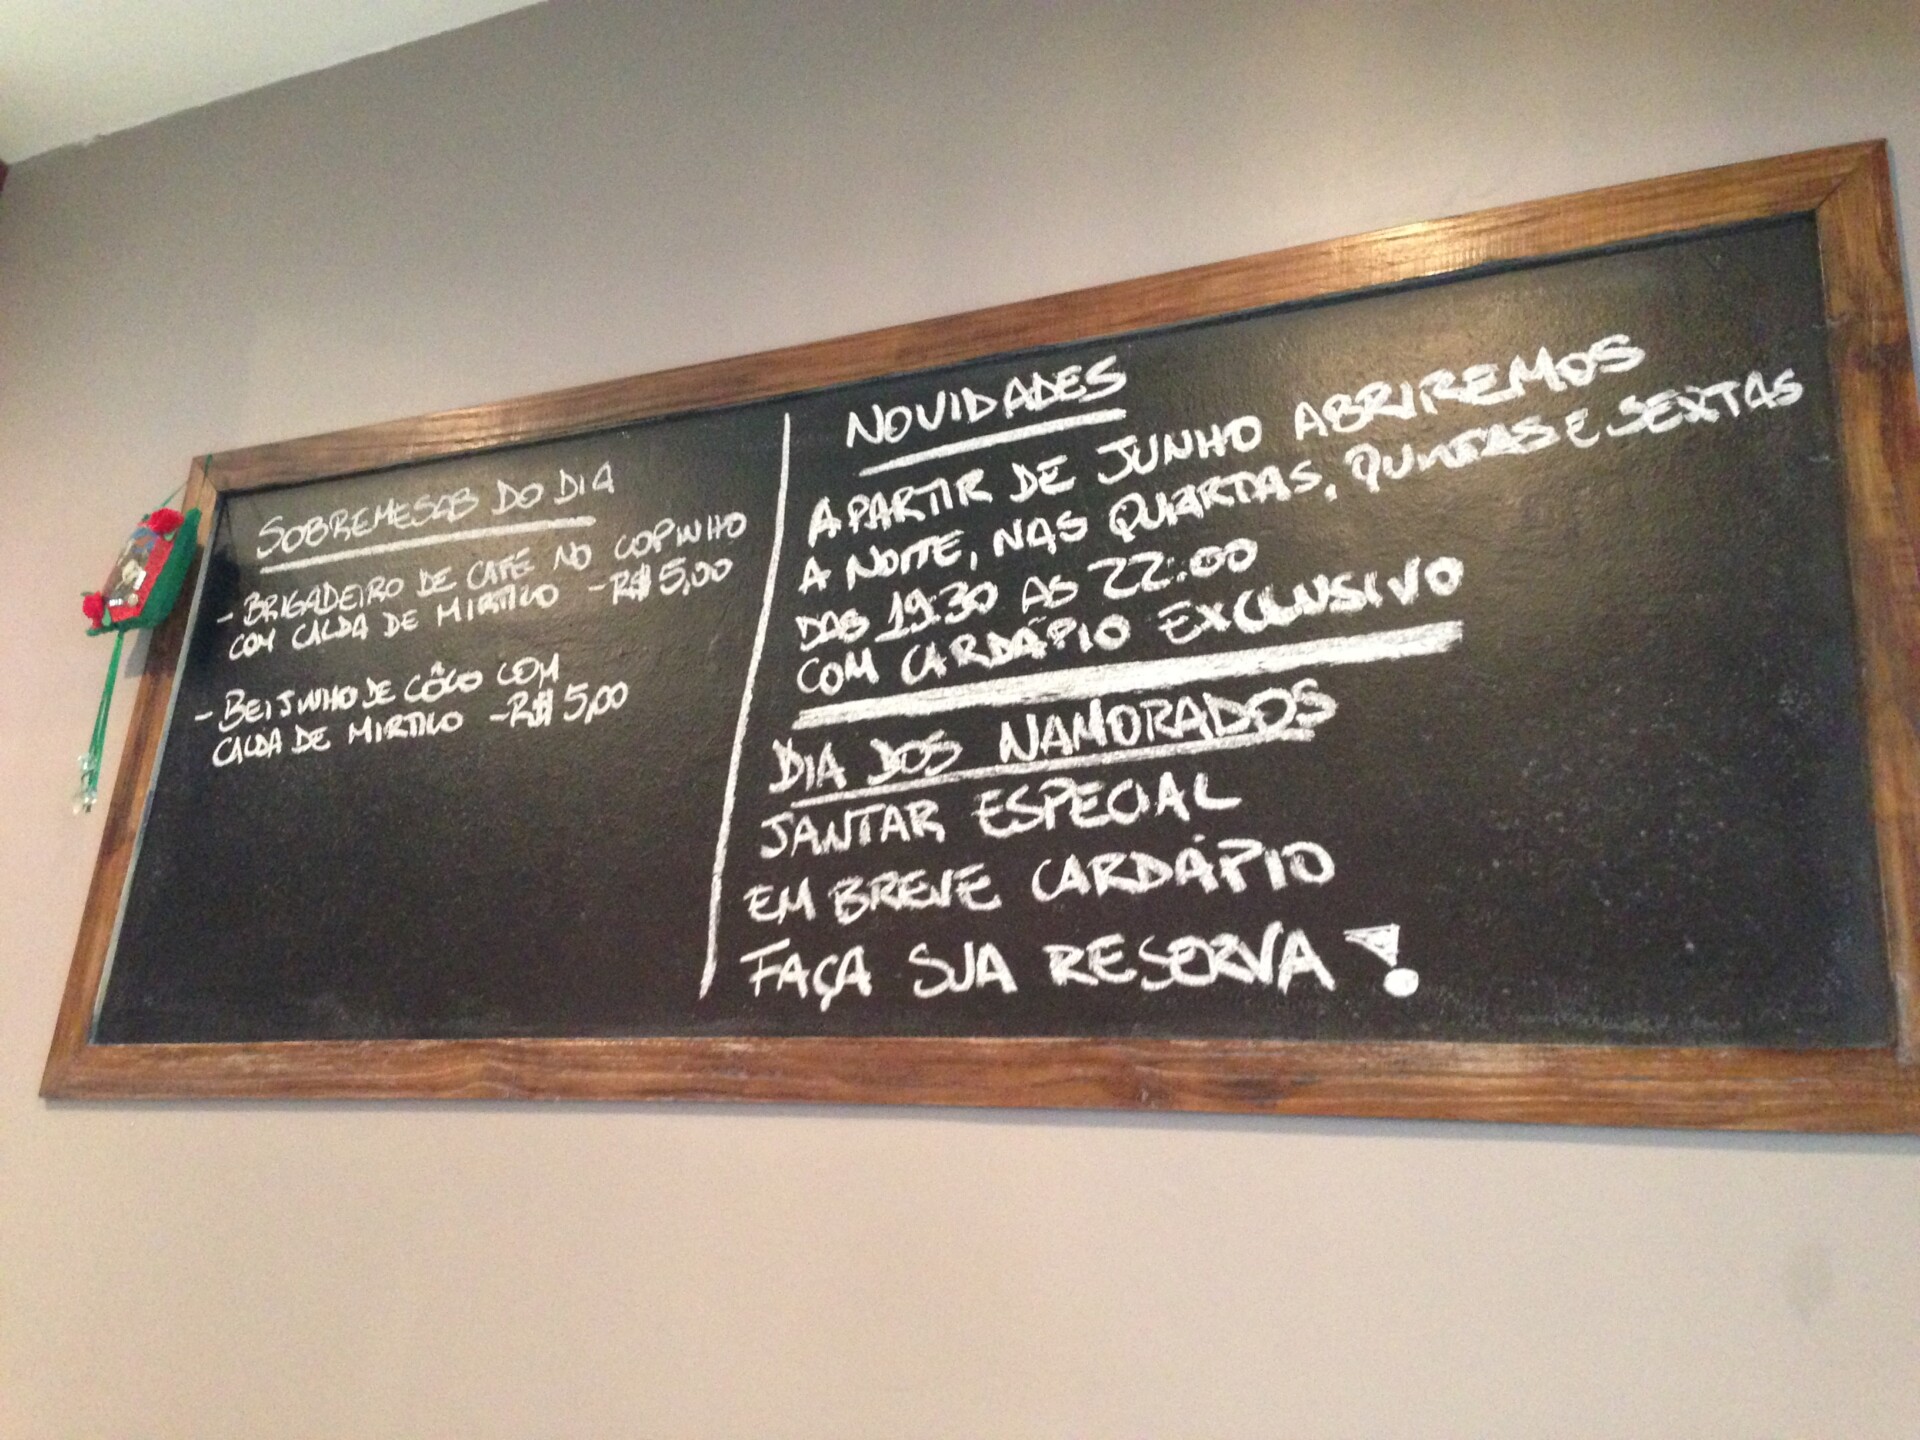 SOBREMESAS DO DIA
- BRIGADEIRO DE CAFÉ NO COPINHO
COM CALDA DE MIRTILO - R$ 5,00
- BEIJINHO DE CÔCO COM
CALDA DE MIRTILO - R$ 5,00
NOVIDADES
A PARTIR DE JUNHO ABRIREMOS
A NOITE, NAS QUARTAS, QUINTAS E SEXTAS
DAS 19:30 AS 22:00
COM CARDÁPIO EXCLUSIVO
DIA DOS NAMORADOS
JANTAR ESPECIAL
EM BREVE CARDÁPIO
FAÇA SUA RESERVA!